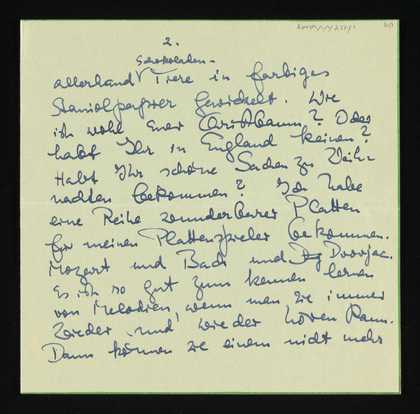 2.
Schokoladen-
allerhand Tiere in farbiges
Staniolpapier gewickelt. Wie
ist wohl Euer Christbaum? Oder
habt Ihr in England keinen?
Habt Ihr schöne Sachen zu Weih-
nachten bekommen? Ich habe
eine Reihe wunderbarer Platten
für meinen Plattenspieler bekommen.
Mozart und Bach und Dvorjac.
Es ist so gut zum kennen lernen
von Melodien, wenn man sie immer
wieder und wieder hören kann.
Dann können sie einem nicht mehr